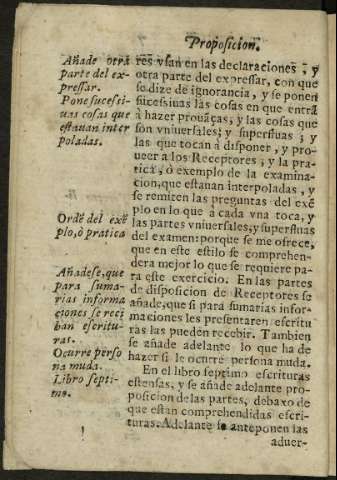 Proposicion.
Añade otra
parte del ex-
pressar.
Pone sucessi-
uas cosas que
estauan inter
poladas.
Ordẽ del exẽ
plo, ò pratica
Añadese, que
para suma-
rias informa
ciones se reci
ban escritu-
ras.
Ocurre perso
na muda.
Libro septi-
mo.
res vsan en las declaraciones, y
otra parte del expressar, con que
se dize de ignorancia, y se ponen
sucessiuas las cosas en que entrã
à hazer prouãças; y las cosas que
son vniuersales; y superfluas; y
las que tocan à disponer, y pro-
ueer a los Receptores; y la pra-
tica, ò exemplo de la examina-
cion, que estauan interpoladas, y
se remiten las preguntas del exẽ
plo en lo que à cada vna toca, y
las partes vniuersales, y superfluas
del examen: porque se me ofrece,
que en este estilo se comprehen-
dera mejor lo que se requiere pa-
ra este exercicio. En las partes
de disposicion de Receptores se
añade, que si para sumarias infor-
maciones les presentaren escritu
ras las pueden recebir. Tambien
se añade adelante lo que ha de
hazer si le ocurre persona muda.
En el libro septimo escrituras
estensas, y se añade adelante pro-
posicion de las partes, debaxo de
que estan comprehendidas escri-
turas. Adelante se anteponen las
aduer-